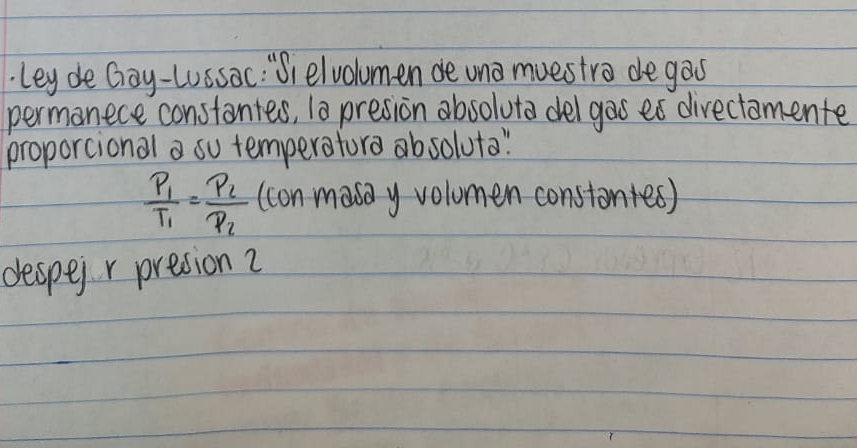 ·Ley de Gay-Lussac: "Si el volumen de una muestra de gas
permanece constantes, la presión absoluta del gas es directamente
proporcional a su temperatura absoluta".
P₁/T₁ = P₂/P₂ (con masa y volumen constantes)
despej r presion 2